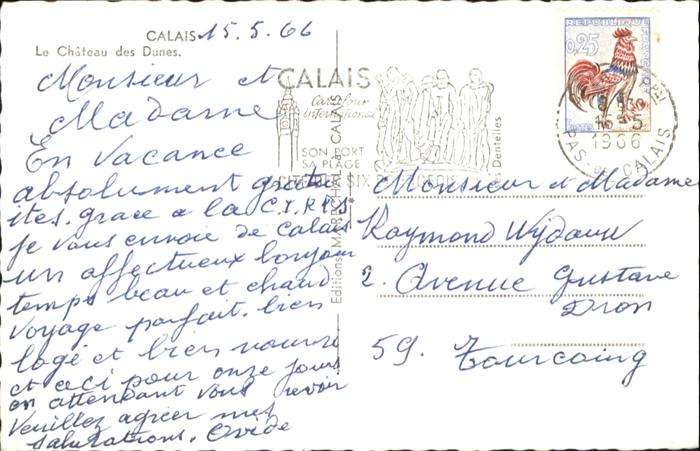 CALAIS 15.5.66
Le Château des Dunes.
Monsieur et
Madame
En Vacance
absolument gratu
ites. grace a la C.I.R.P.S.
je vous envoie de Calais
un affectueux bonjour
temps beau et chaud
voyage parfait. bien
logé et bien nourri
et ceci pour onze jours
en attendant vous revoir
Veuillez agreer mes
salutations. Ovide
Editions MARECHAL à CALAIS
CALAIS
Carrefour
international
SON PORT
SA PLAGE
SIX
Dentelles
REPUBLIQUE FRANÇAISE
0,25
15-5
1966
PAS-DE-CALAIS
Monsieur et Madame
Raymond Wydauw
2. Avenue Gustave
Dron
59. Tourcoing